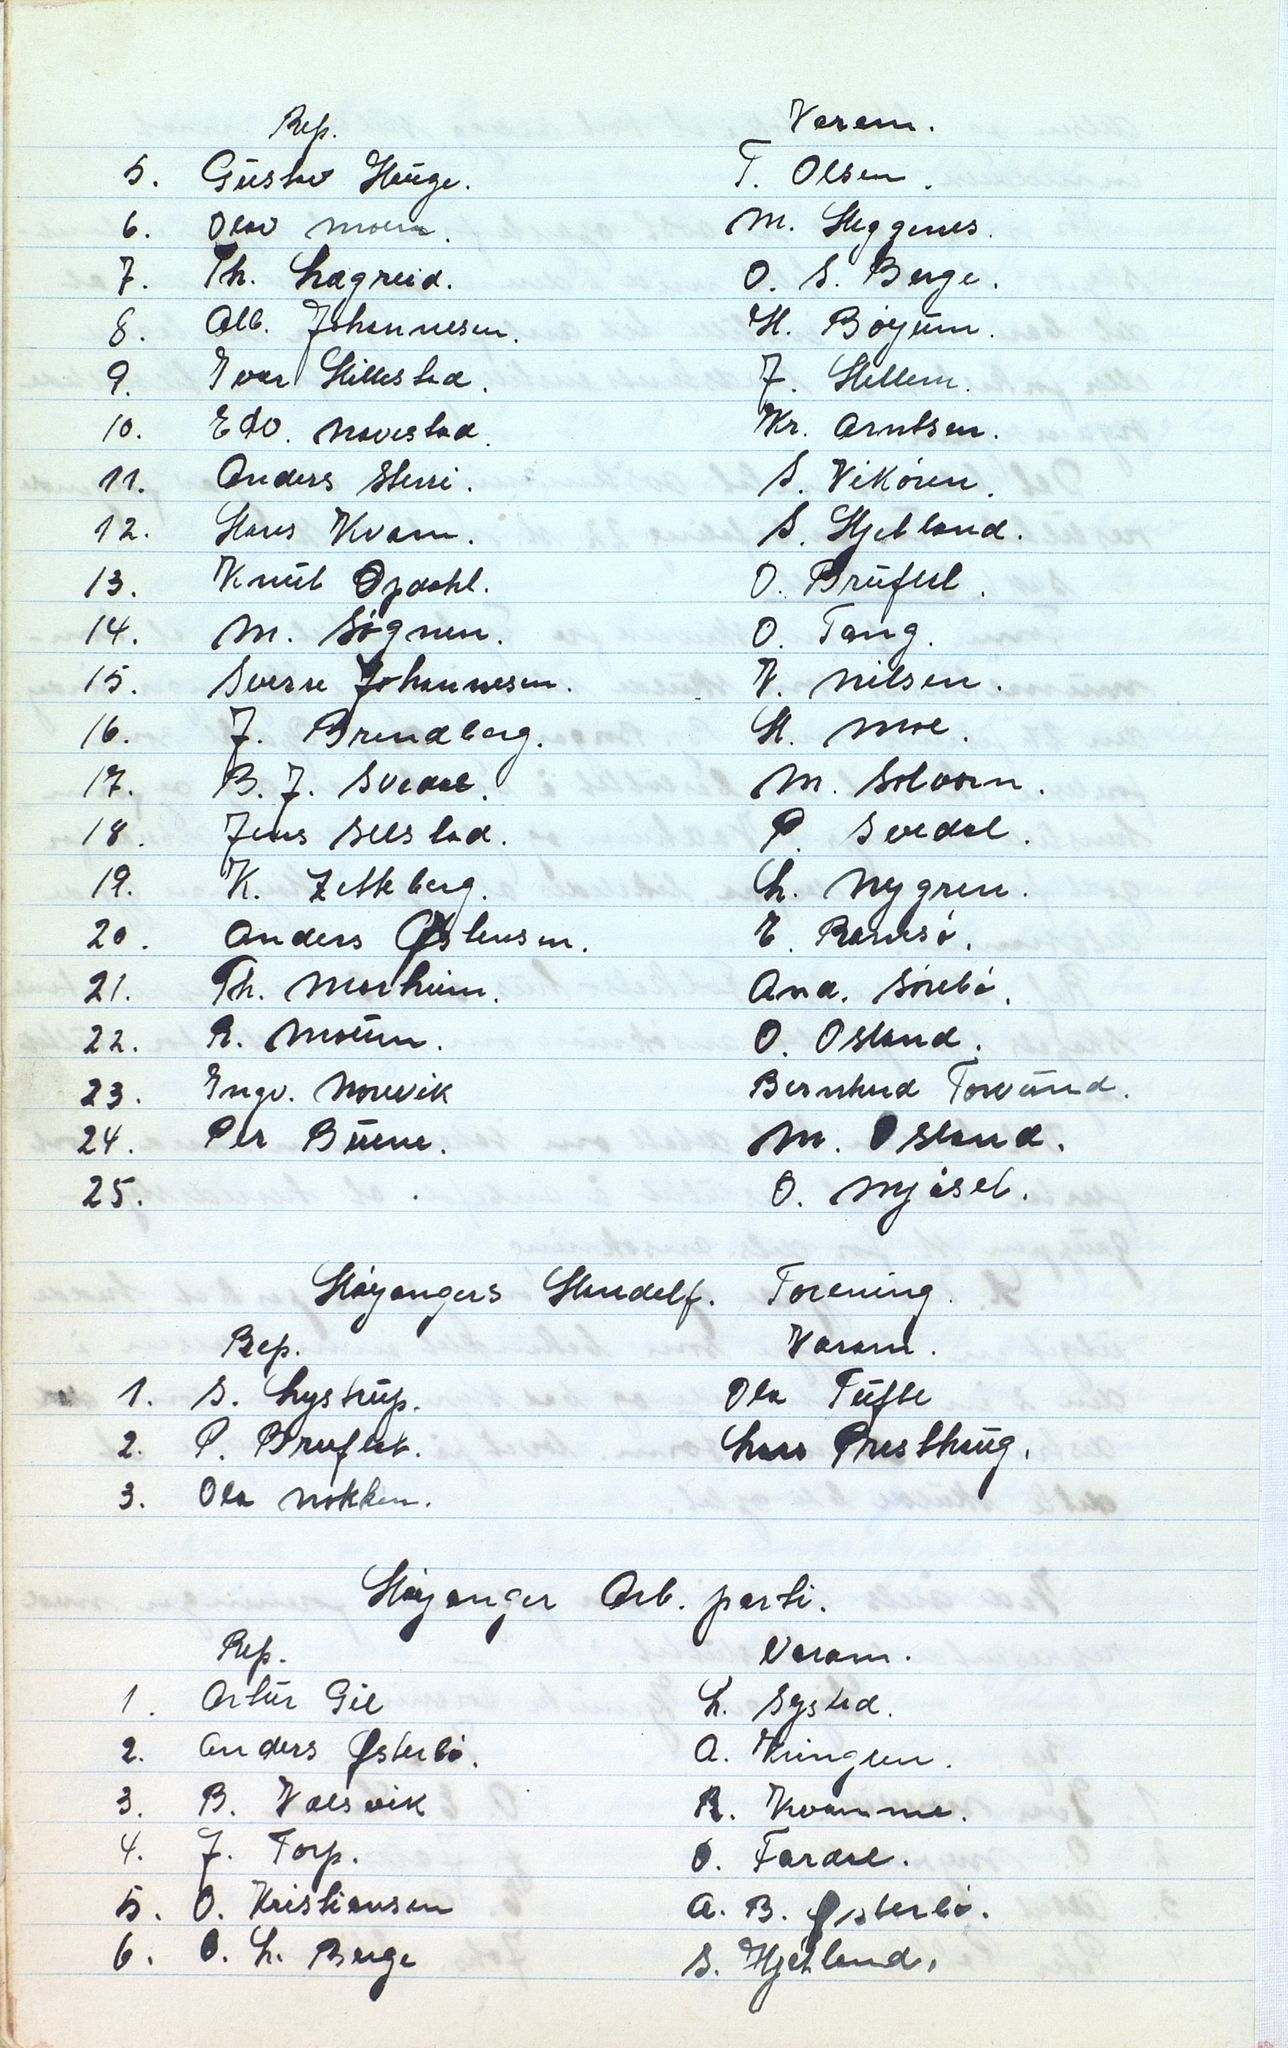 Rep. Varam.
5. Gustav Hauge. T. Olsen.
6. Olav Moen. M. Heggenes.
7. Th. Lægreid. O. S. Berge.
8. Alb. Johannesen. H. Bøyum.
9. Ivar Hillestad. J. Hellem.
10. Edv. Navestad. Kr. Arntsen.
11. Anders Sterri. S. Vikøren.
12. Hans Kvam. S. Hjetland.
13. Knut Opdahl. O. Bruflat.
14. M. Søgnen. O. Tang.
15. Sverre Johannesen. V. Nilsen.
16. J. Brendberg. H. Moe.
17. B. J. Svedal. M. Solvorn.
18. Jens Selstad. P. Svedal.
19. K. Zetteberg. L. Nygren.
20. Anders Østensen. E. Ramsø.
21. Th. Morheim. And. Sørebø.
22. R. Moum. O. Osland.
23. Ingv. Norevik Bernhard Torvund.
24. Per Buene. M. Osland.
25. O. Mjøset.
Høyangers Handelf. Forening.
Rep. Varam.
1. S. Lystrup. Ola Tufte
2. P. Bruflat. Lars Presthaug.
3. Ola Nokken.
Høyanger Arb. parti.
Rep. Varam.
1. Artur Gil L. Systad.
2. Anders Østerbø. A. Kringlen.
3. B. Valsvik R. Kvamme.
4. J. Torp. O. Fardal.
5. O. Kristiansen A. B. Østerbø.
6. O. L. Berge S. Hjetland.